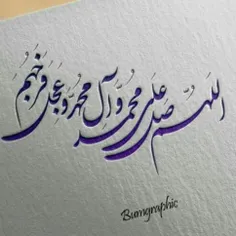 اللهم صل علی محمد و آل محمد و عجل فرجهم
Bumgraphic